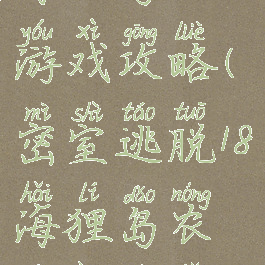 yóu xì gōng lüè
游戏攻略(
mì shì táo tuō
密室逃脱18
hǎi lí dǎo nóng
海狸岛农